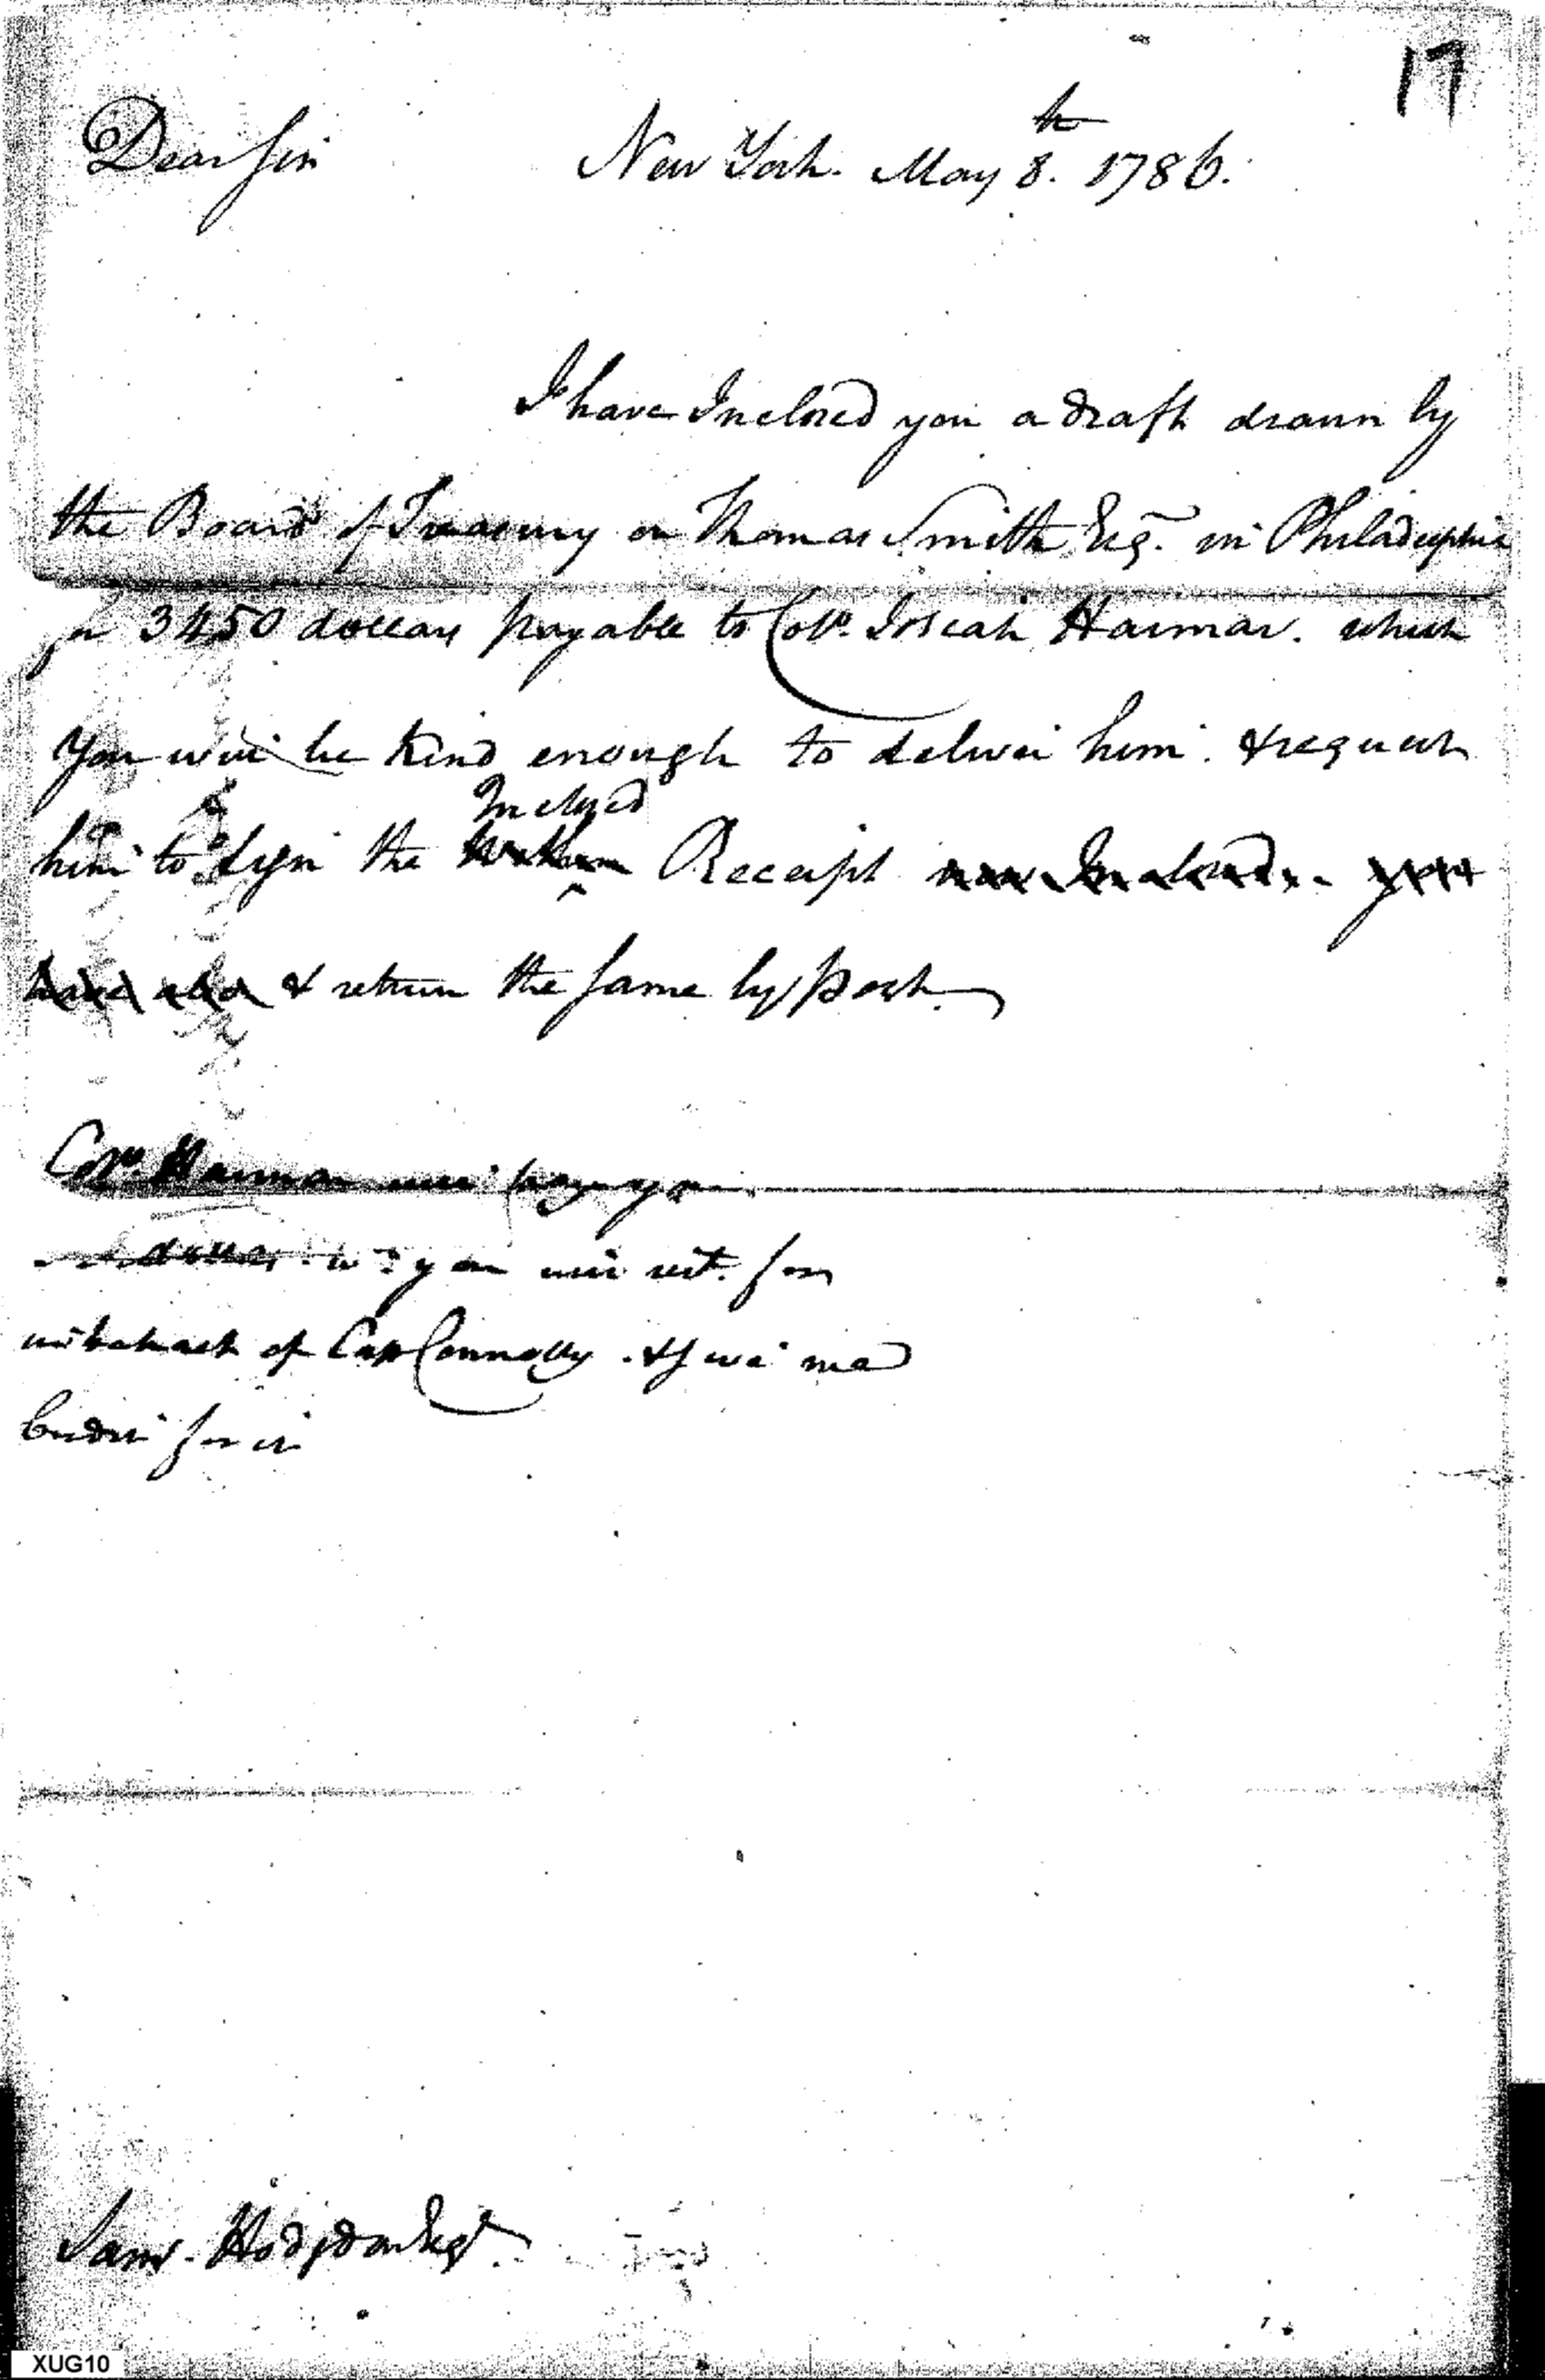 17
Dear Sir New York. May 8th. 1786.
I have Inclosed you a draft drawn by
the Board of Treasury on Thomas Smith Esq. in Philadelphia
for 3450 dollars payable to Colo. Josiah Harmar. which
you will be kind enough to deliver him. & request
him to sign the Inclosed Receipt
& return the same by post
Colo. Harmar will pay you
dollars you will
of Cap Connolly. &
Credit for it
Saml. Hodgdon Esqr.
XUG10